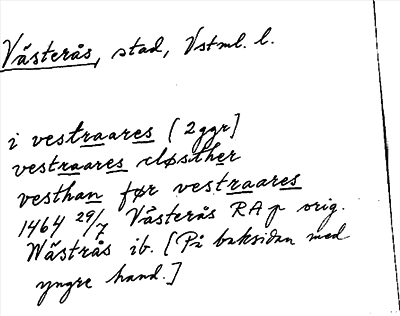 Västerås, stad, Vstml. l.
i vestraares [2ggr]
vestraares closther
vesthan før vestraares
1464 29/7 Västerås RAp orig.
Wästrås ib. [På baksidan med
yngre hand.]